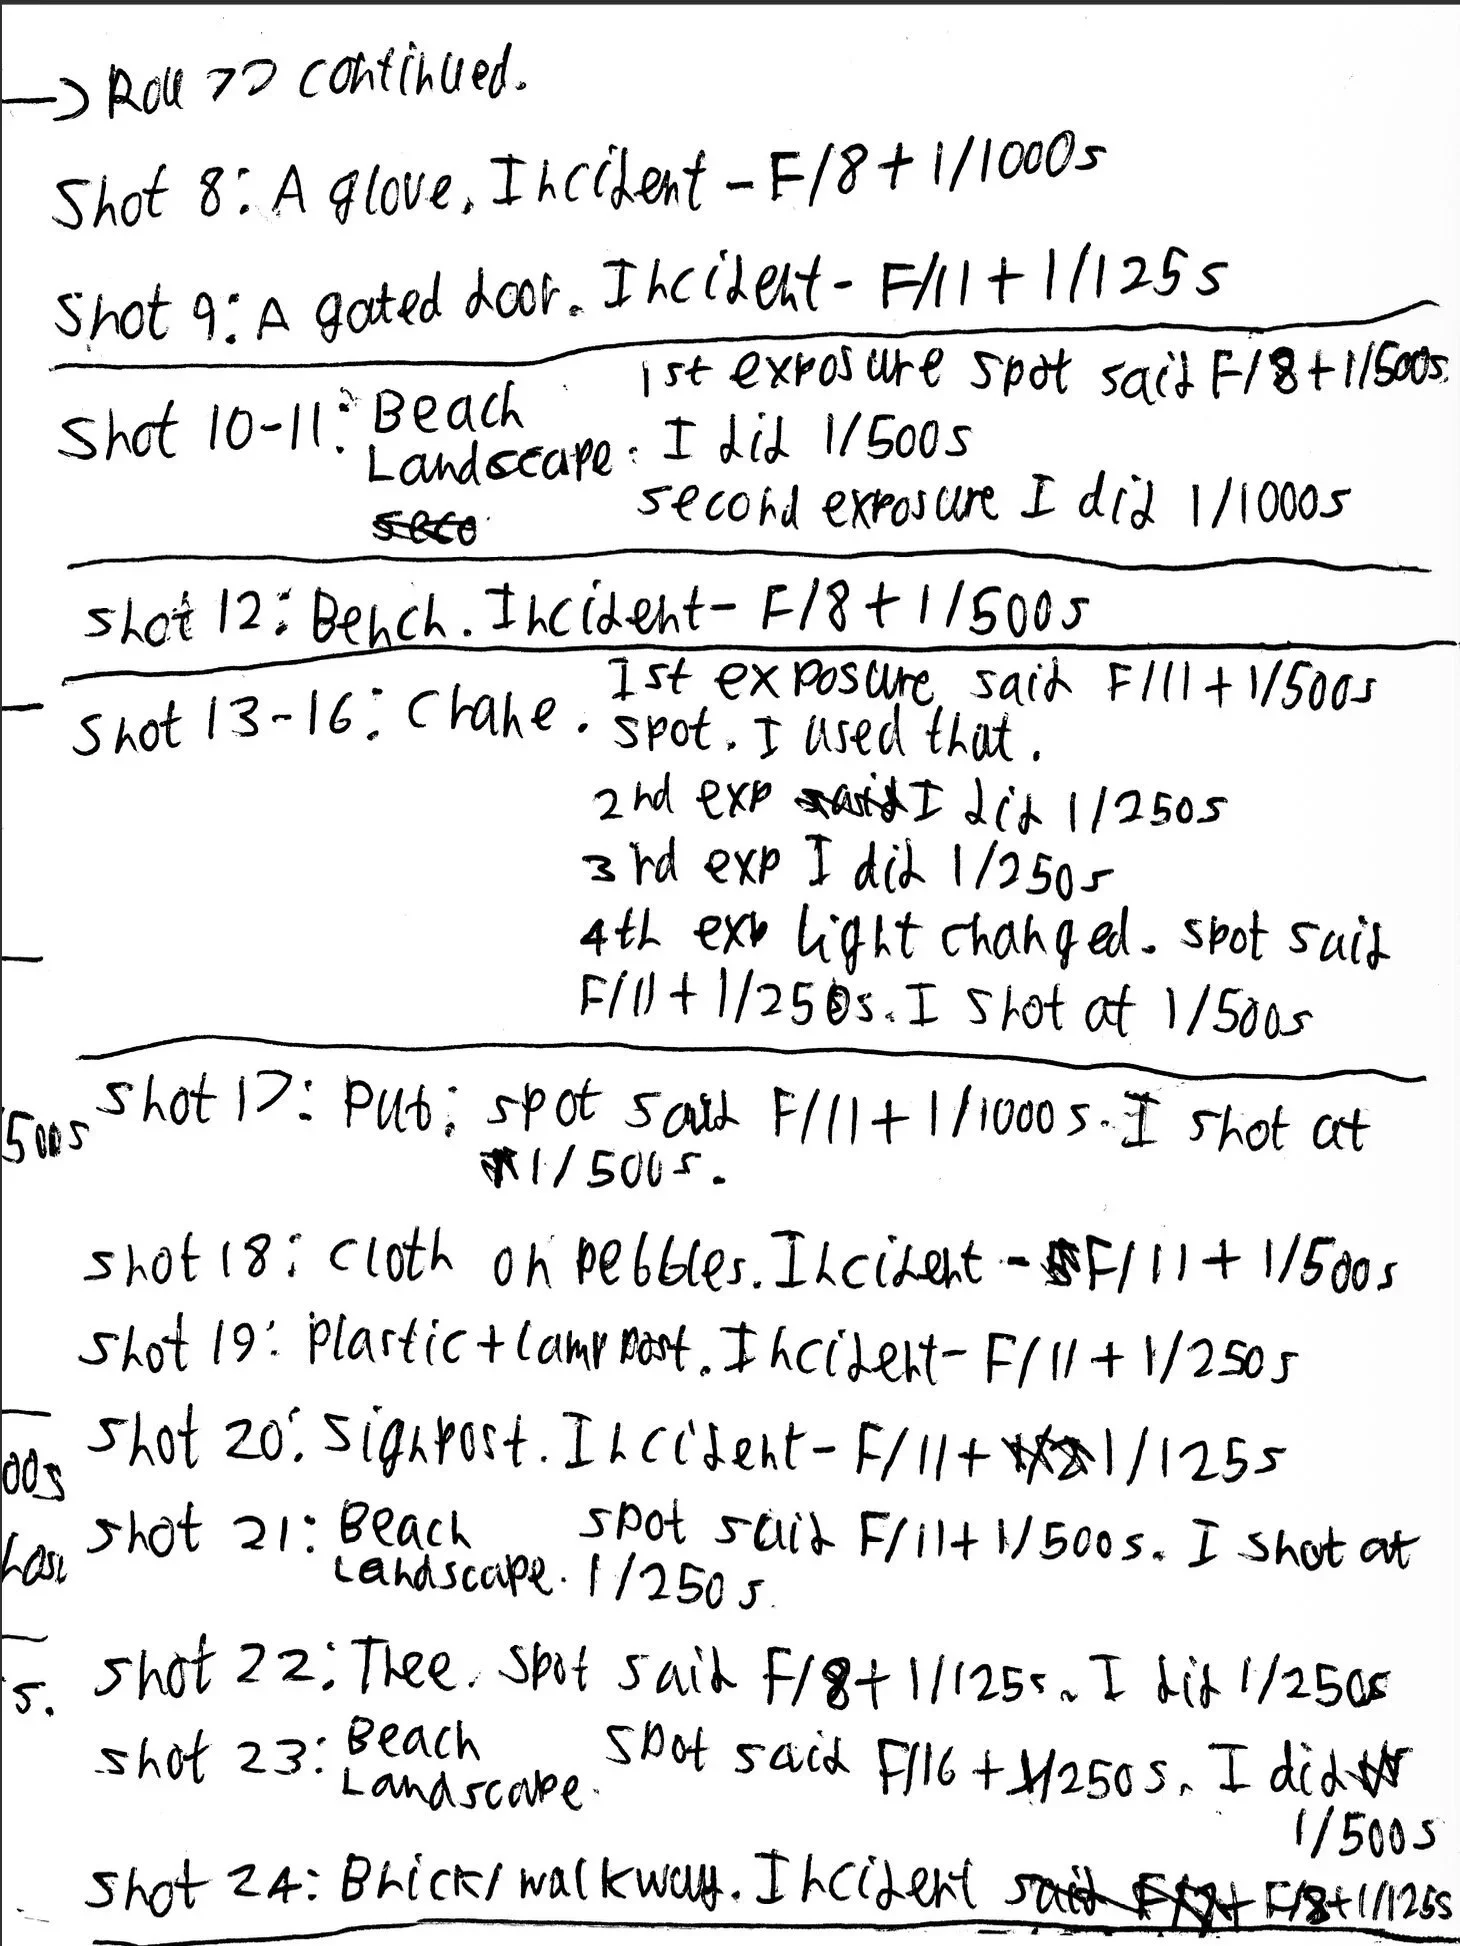 → Roll 77 continued.
Shot 8: A glove. Incident - F/8 + 1/1000s
Shot 9: A gated door. Incident - F/11 + 1/125s
Shot 10-11: Beach Landscape.
1st exposure spot said F/8 + 1/500s.
I did 1/500s
second exposure I did 1/1000s
Shot 12: Bench. Incident - F/8 + 1/500s
Shot 13-16: Crane. 1st exposure said F/11 + 1/500s
spot. I used that.
2nd exp I did 1/250s
3rd exp I did 1/250s
4th exp light changed. spot said
F/11 + 1/250s. I shot at 1/500s
Shot 17: Pub: spot said F/11 + 1/1000s. I shot at
1/500s.
Shot 18: Cloth on pebbles. Incident - F/11 + 1/500s
Shot 19: Plastic + lamp post. Incident - F/11 + 1/250s
Shot 20: Signpost. Incident - F/11 + 1/125s
Shot 21: Beach Landscape. spot said F/11 + 1/500s. I shot at
1/250s.
Shot 22: Tree. Spot said F/8 + 1/125s. I did 1/250s
Shot 23: Beach Landscape. spot said F/16 + 1/250s. I did
1/500s
Shot 24: Brick/walkway. Incident F/8 + 1/125s
500s
00s
s.